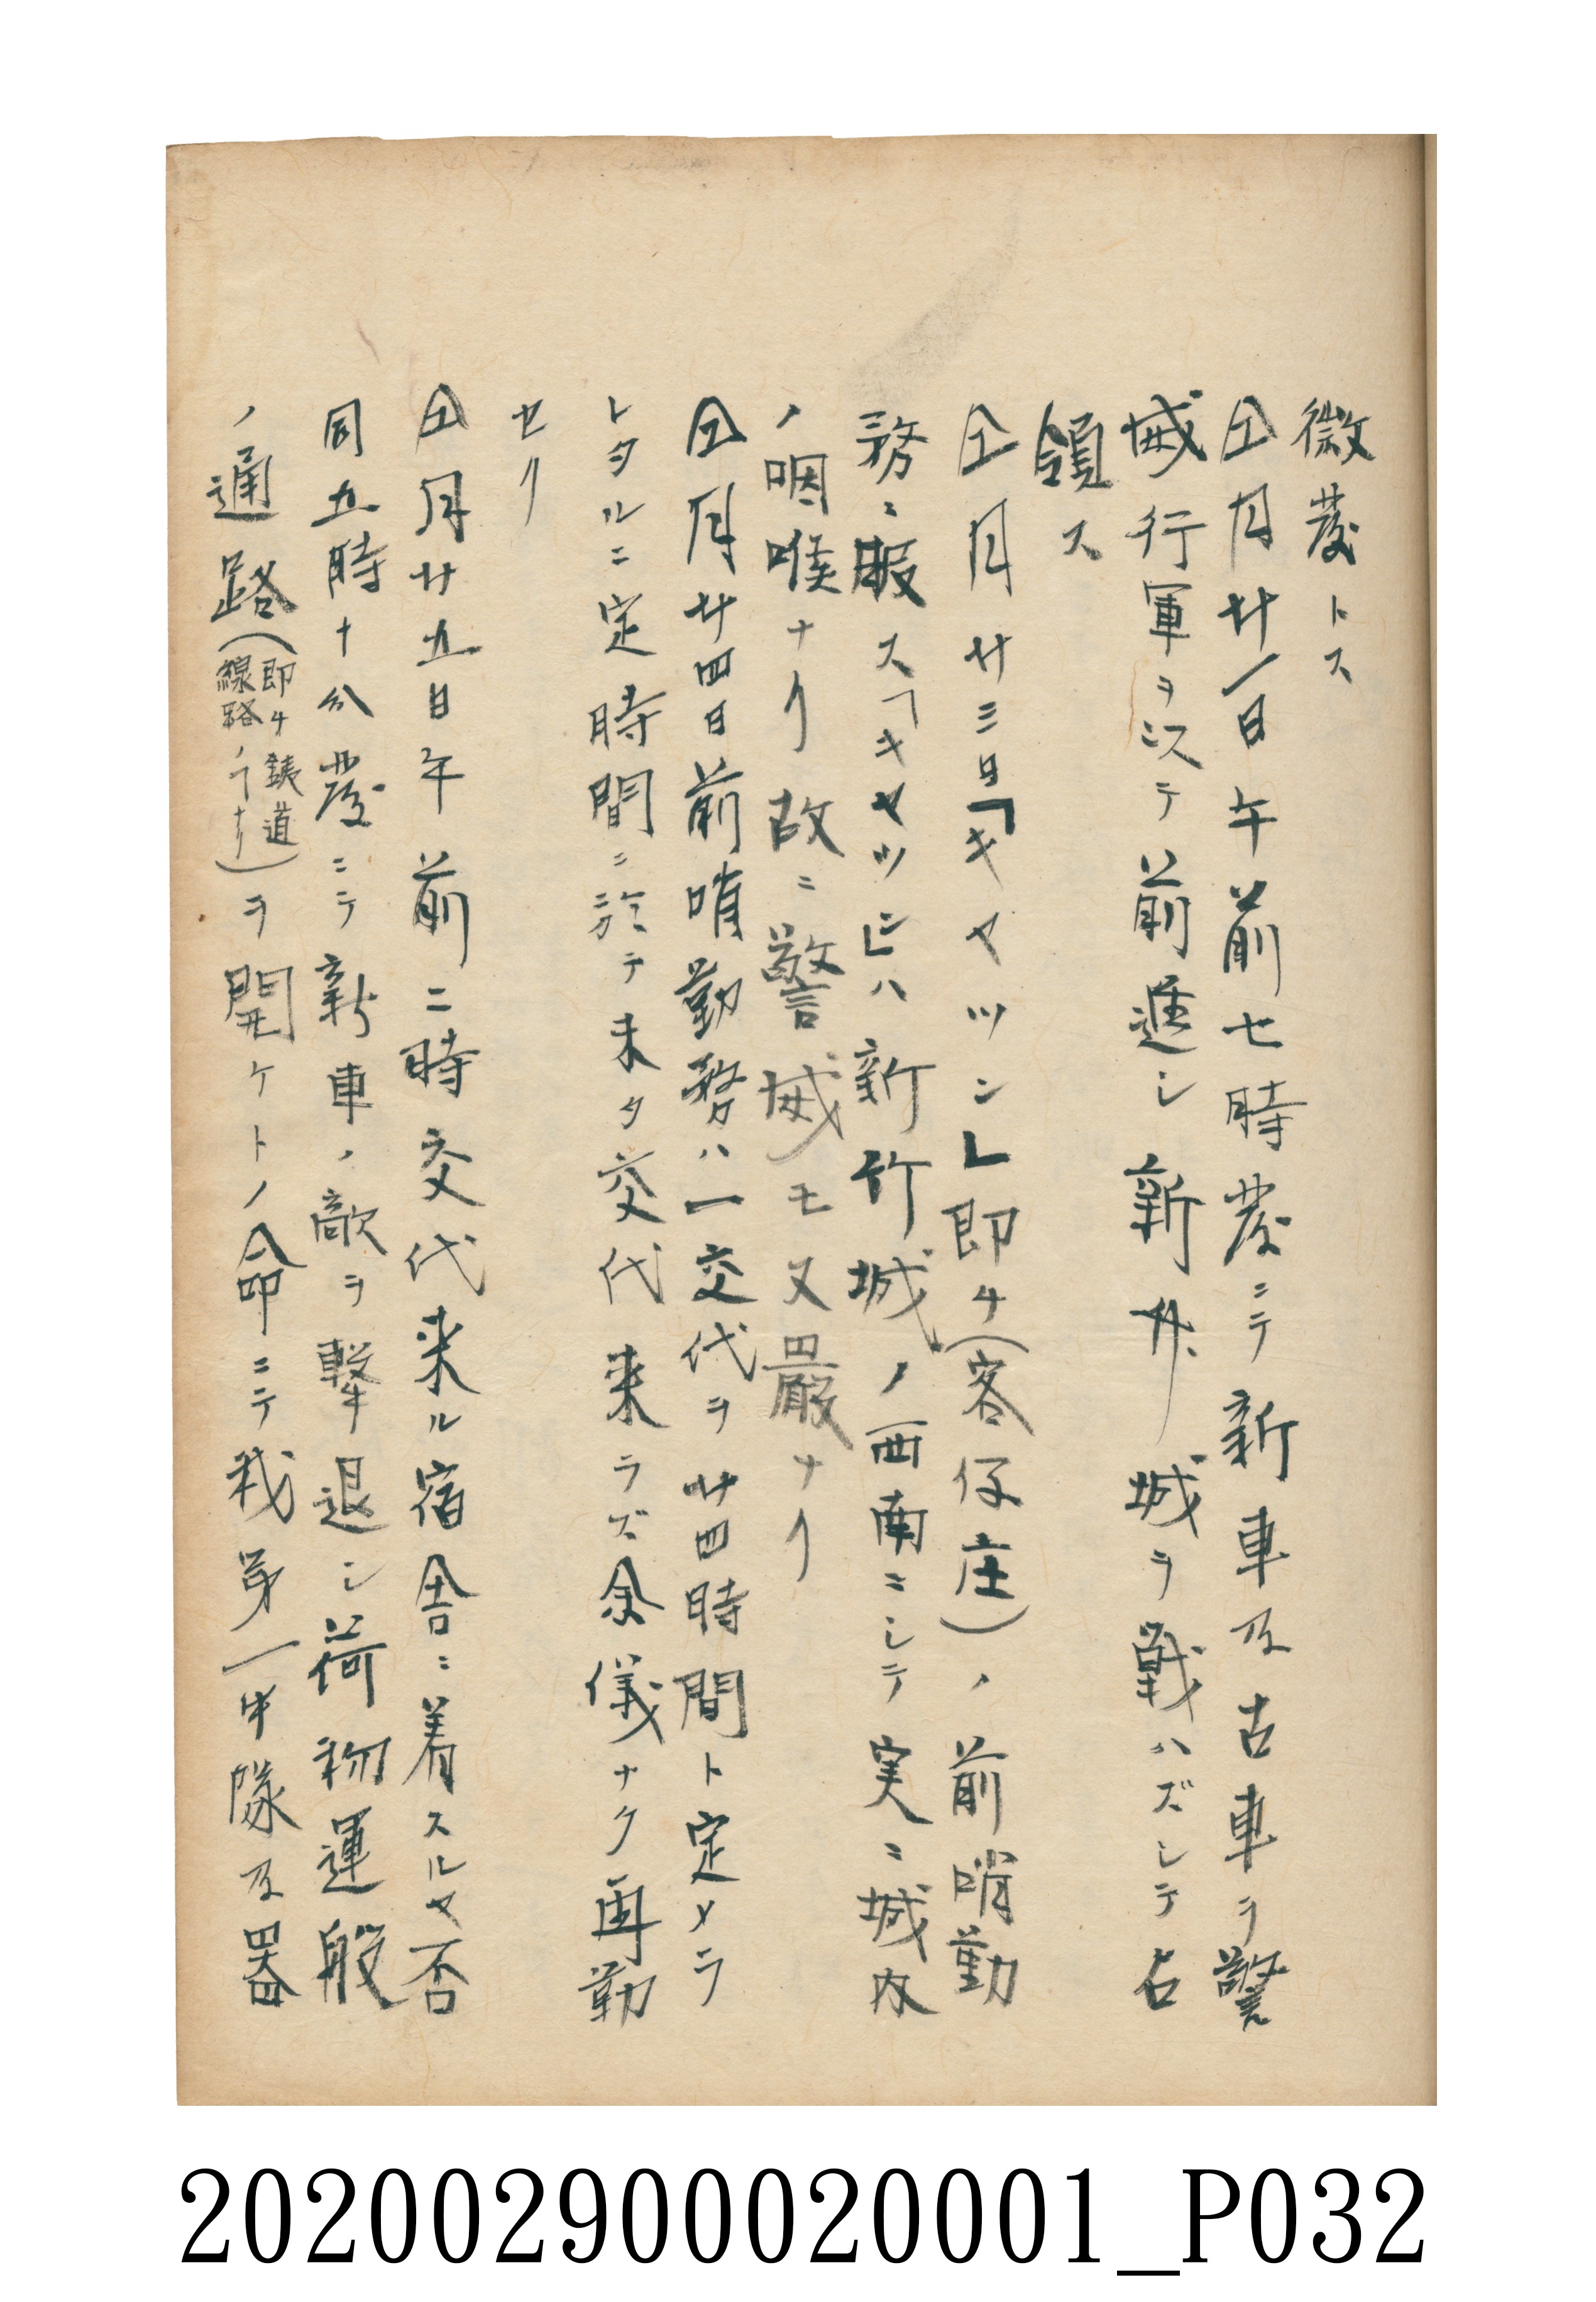 徴発トス
仝月廿一日午前七時発ニテ新車及古車ヲ警
戒行軍ヲ以テ前進シ新竹城ヲ戦ハズシテ占
領ス
仝月廿三日「キヤツシ」即チ(客仔庄)ノ前哨勤
務ニ服ス「キヤツシ」ハ新竹城ノ西南ニシテ実ニ城内
ノ咽喉ナリ故ニ警戒モ又嚴ナリ
仝月廿四日前哨勤務ハ一交代ヲ廿四時間ト定メラ
レタルニ定時間ニ於テ未タ交代来ラズ余儀ナク再勤
セリ
仝月廿五日午前二時交代来ル宿舎ニ着スルヤ否
同五時十分発ニテ新車ノ敵ヲ撃退シ荷物運般
ノ通路(即チ鉄道線路ノ〻ナリ)ヲ開ケトノ命ニテ我第一中隊及器
2020029000020001_P032